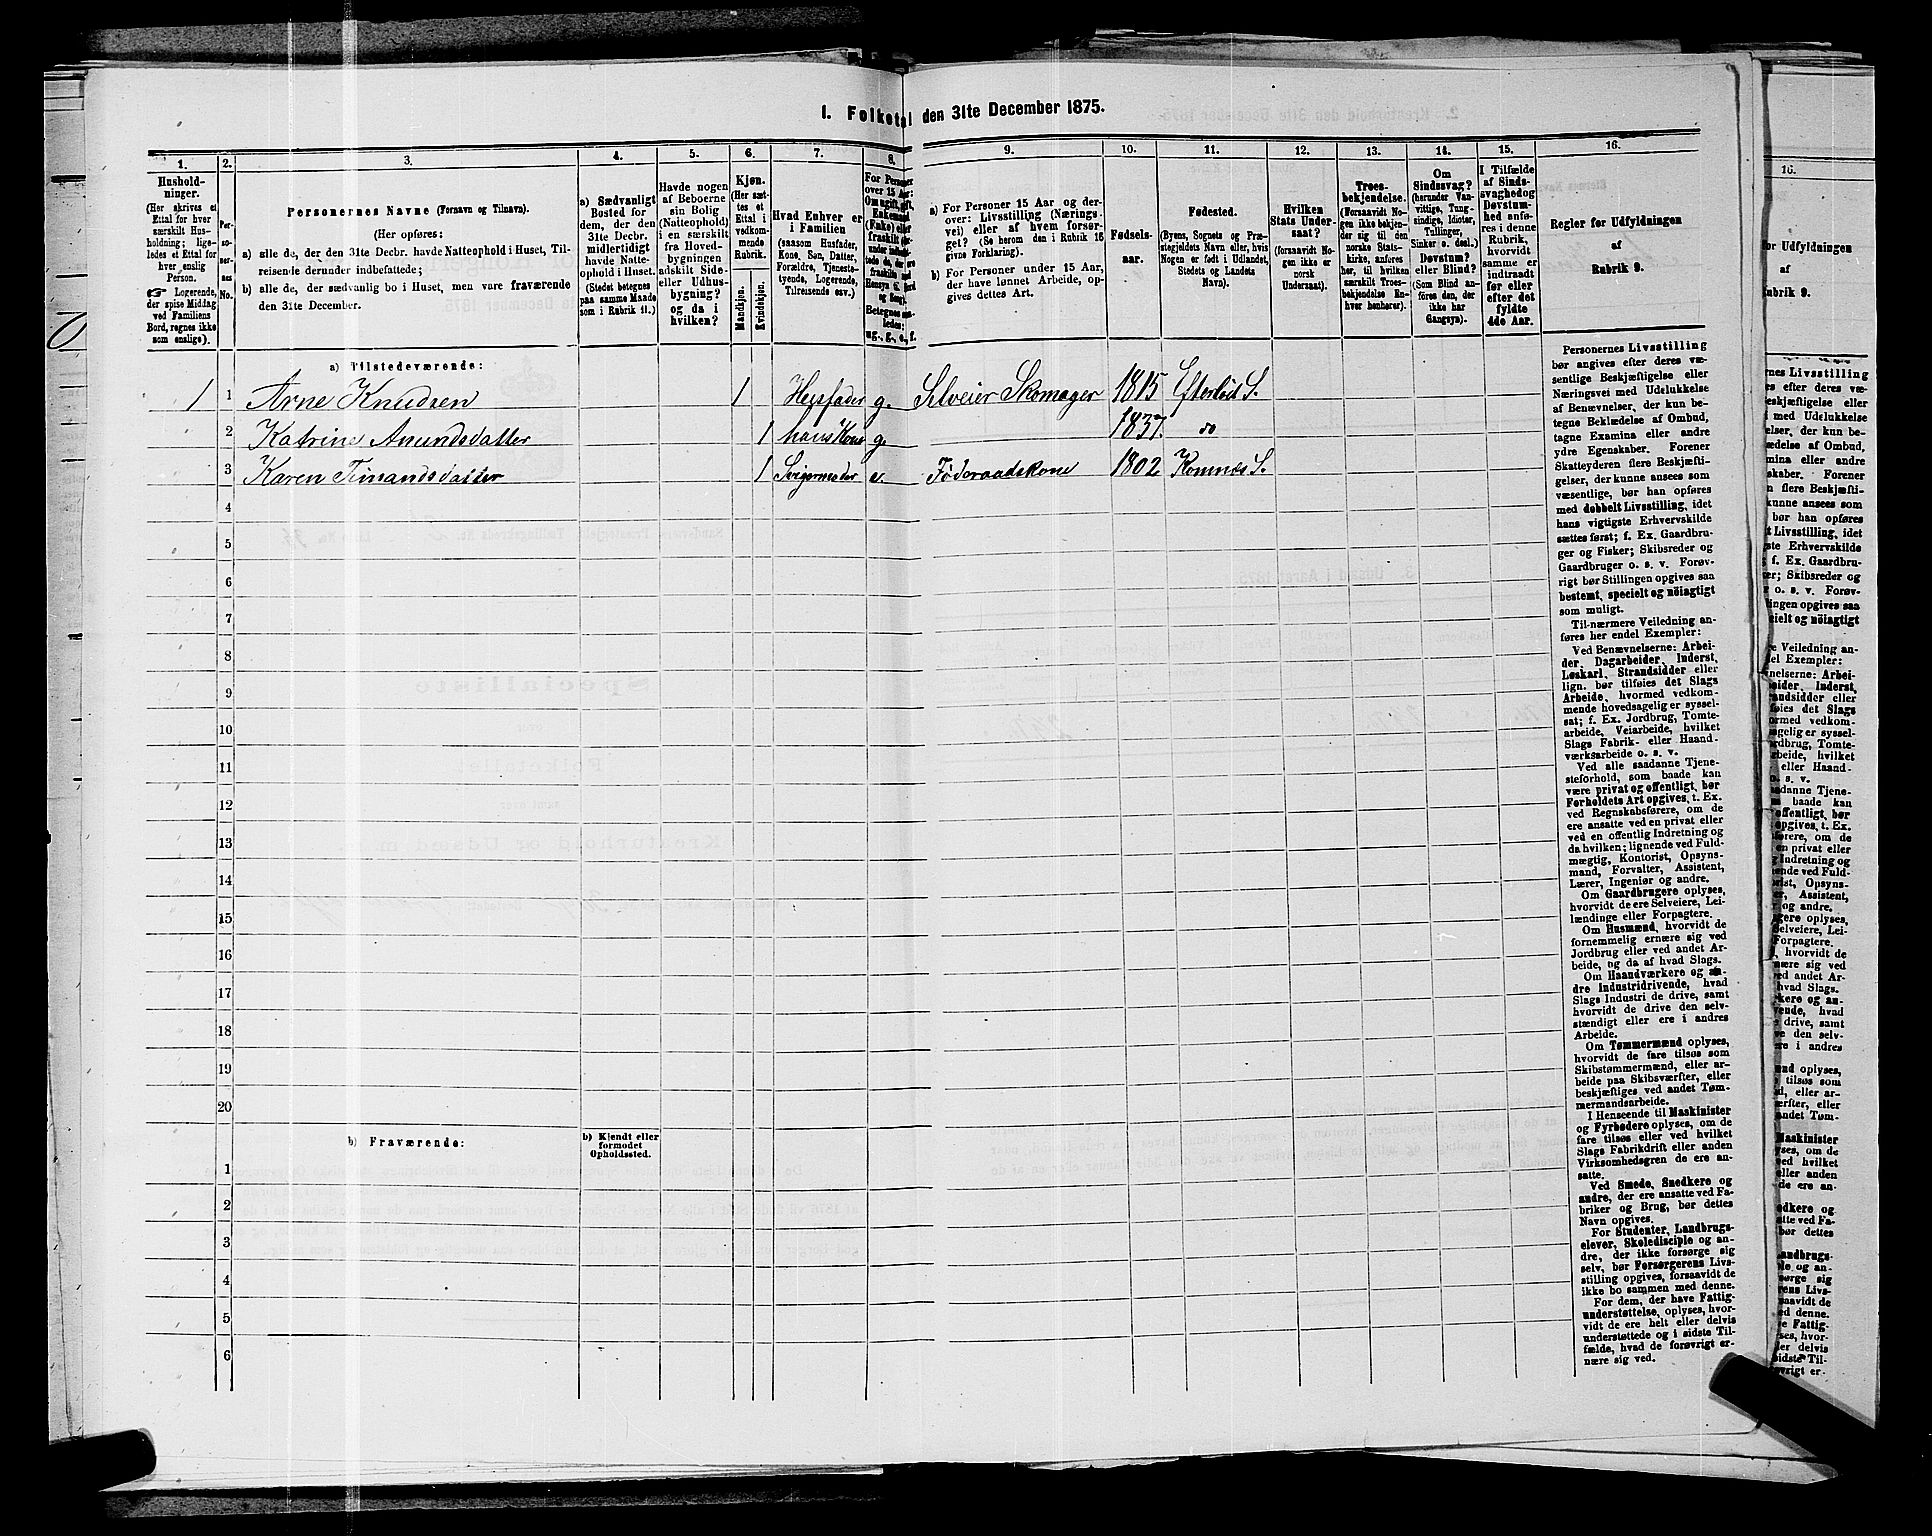 1. Folketal den 31te December 1875.
1. 2. 3. 4. 5. 6. 7. 8. 9. 10. 11. 12. 13. 14. 15. 16.
Hushold-
ninger.
(Her skrives et
Ettal for hver
særskilt Hus-
holdning; lige-
ledes et Ettal for
hver enslig
Person.
☞ Logerende,
der spise Middag
ved Familiens
Bord, regnes ikke
som enslige).
Per-
so-
ner-
nes
No.
Personernes Navne (Fornavn og Tilnavn).
(Her opføres:
a) alle de, der den 31te Decbr. havde Natteophold i Huset, Til-
reisende derunder indbefattede;
b) alle de, der sædvanlig bo i Huset, men vare fraværende
den 31te December.
a) Sædvanligt
Bosted for
dem, der den
31te Decbr.
midlertidigt
havde Natte-
ophold i Huset.
(Stedet betegnes
paa samme Maade
som i Rubrik 11.)
Havde nogen
af Beboerne
sin Bolig
(Natteophold)
i en særskilt
fra Hoved-
bygningen
adskilt Side-
eller Udhus-
bygning?
og da i
hvilken?
Kjøn.
(Her sæt-
tes et
Ettal i
vedkom-
mende
Rubrik.
Mandkjøn.
Kvindekjøn.
Hvad Enhver er
i Familien
(saasom Husfader,
Kone, Søn, Datter,
Forældre, Tjeneste-
tyende, Logerende,
Tilreisende osv.)
For Personer
over 15 Aar:
Om ugift, gift,
Enkemand
(Enke) eller
fraskilt
Betegnes
ledes:
ug., g., e., f.
a) For Personer 15 Aar og der-
over: Livsstilling (Nærings-
vei) eller af hvem forsør-
get? (Se herom den i Rubrik 16
givne Forklaring).
b) For Personer under 15 Aar,
der have lønnet Arbeide, op-
gives dettes Art.
Fødsels-
aar.
Fødested.
(Byens, Sognets og Præ-
stegjeldets Navn eller, hvis
Nogen er født i Udlandet,
Stedets og Landets
Navn).
Hvilken
Stats Under-
saat?
(forsaavidt No-
gen ikke er
norsk
Undersaat).
Troes-
bekjendelse.
(Forsaavidt No-
gen ikke bekjen-
der sig til den
norske Stats-
kirke, anføres
her, til hvilken
særskilt Troes-
bekjendelse En-
hver henhører).
Om
Sindssvag?
(herunder Van-
vittige, Tung-
sindige, Idioter,
Tullinger,
Sinker o. desl.)
Døvstum?
eller Blind?
(Som Blind an-
føres den, der
ikke har
Gangsyn).
I Tilfælde
af Sinds-
svaghed og
Døvstum-
hed anfø-
res i denne
Rubrik,
hvorvidt
samme er
indtraadt
før eller
efter det
fyldte
4de Aar.
Regler for Udfyldningen
af
Rubrik 9.
a) Tilstedeværende:
1 1 Arne Knudsen 1 Husfader g. Selveier Skomager 1815 Efterløt S.
2 Katrine Amundsdatter 1 hans Kone g. 1837. do
3 Karen Timandsdatter 1 Svigermoder e. Føderaadskone 1802 Komnæs S.
4
5
6
7
8
9
10
11
12
13
14
15
16
17
18
19
20
b) Fraværende:
b) Kjendt eller
formodet
Opholdssted.
1
2
3
4
5
6
Personernes Livsstilling
bør angives efter deres væ-
sentlige Beskjæftigelse eller
Næringsvei med Udelukkelse
af Benævnelser, der kun be-
tegne Beklædelse af Ombud,
tagne Examina eller andre
ydre Egenskaber. Forener
Skatteyderen flere Beskjæfti-
gelser, der kunne ansees som
væsentlige, bør han opføres
med dobbelt Livsstilling, idet
hans vigtigste Erhvervskilde
sættes først; f. Ex. Gaardbru-
ger og Fisker; Skibsreder og
Gaardbruger o. s. v. Forøv-
rigt bør Stillingen opgives saa
bestemt, specielt og nöiagtigt
som muligt.
Til nærmere Veiledning an-
føres her endel Exempler:
Ved Benævnelserne: Arbei-
der, Dagarbeider, Inderst,
Løskarl, Strandsidder eller
lign. bør tilføies det Slags
Arbeide, hvormed vedkom-
mende hovedsagelig er syssel-
sat; f. Ex. Jordbrug, Tomte-
arbeide, Veiarbeide, hvilket
Slags Fabrik- eller Haand-
værksarbeide o. s. v.
Ved alle saadanne Tjene-
steforhold, som baade kan
være privat og offentligt, bør
Forholdets Art opgives, t. Ex.
ved Regnskabsførere, om de
ere ansatte ved en privat eller
ved en offentlig Indretning og
da hvilken; lignende ved Fuld-
mægtig, Kontorist, Opsyns-
mand, Forvalter, Assistent,
Lærer, Ingeniør og andre.
Om Gaardbrugere oplyses,
hvorvidt de ere Selveiere, Lei-
lændinge eller Forpagtere.
Om Husmænd, hvorvidt de
fornemmelig ernære sig ved
Jordbrug eller ved andet Ar-
beide, og da af hvad Slags.
Om Haandværkere og an-
dre Industridrivende, hvad
Slags Industri de drive, samt
hvorvidt de drive den selv-
stændigt eller ere i andres
Arbeide.
Om Tømmermænd oplyses,
hvorvidt de fare tilsøs som
Skibstømmermænd, eller ar-
beide paa Skibsværfter, eller
beskjæftiges ved andet Tøm-
mermandsarbeide.
I Henseende til Maskinister
og Fyrbødere oplyses, om de
fare tilsøs eller ved hvilket
Slags Fabrikdrift eller anden
Virksomhedsgren de ere an-
satte.
Ved Smede, Snedkere og
andre, der ere ansatte ved Fa-
briker og Brug, bør dettes
Navn opgives.
For Studenter, Landbrugs-
elever, Skoledisciple og an-
dre, der ikke forsørge sig
selv, bør Forsørgerens Livs-
stilling opgives, forsaavidt de
ikke bo sammen med denne.
For dem, der have Fattig-
understøttelse, oplyses, hvor-
vidt de ere helt eller delvis
understøttede og i sidste Til-
fælde, hvad de forøvrigt er-
nære sig ved.